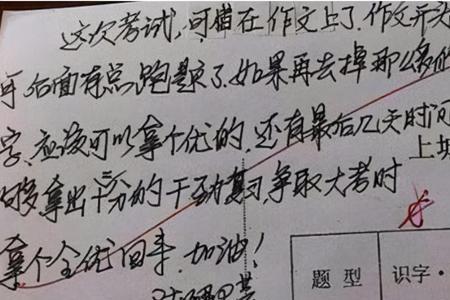 这次考试,可惜在作文上了.作文开头
可后面有点跑题了.如果再去掉那么多的
字,应该可以拿个优的.还有最后几天时间
上块
够拿出十二分的干劲复习争取大考时
拿个全优回来.加油!
题 型 识字·